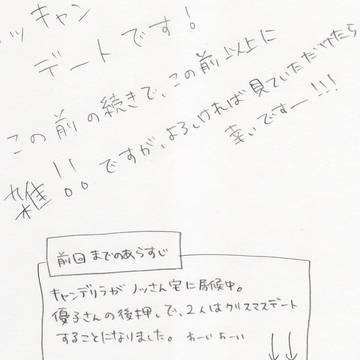 ッキャン
デートです！
この前の続きで、この前以上に
雑!!ですが、よろしければ見ていただけたら
幸いですー!!!
前回までのあらすじ
キャンデリラがノッさん宅に居候中。
優子さんの後押しで、2人はクリスマスデート
することになりました。わーいわーい